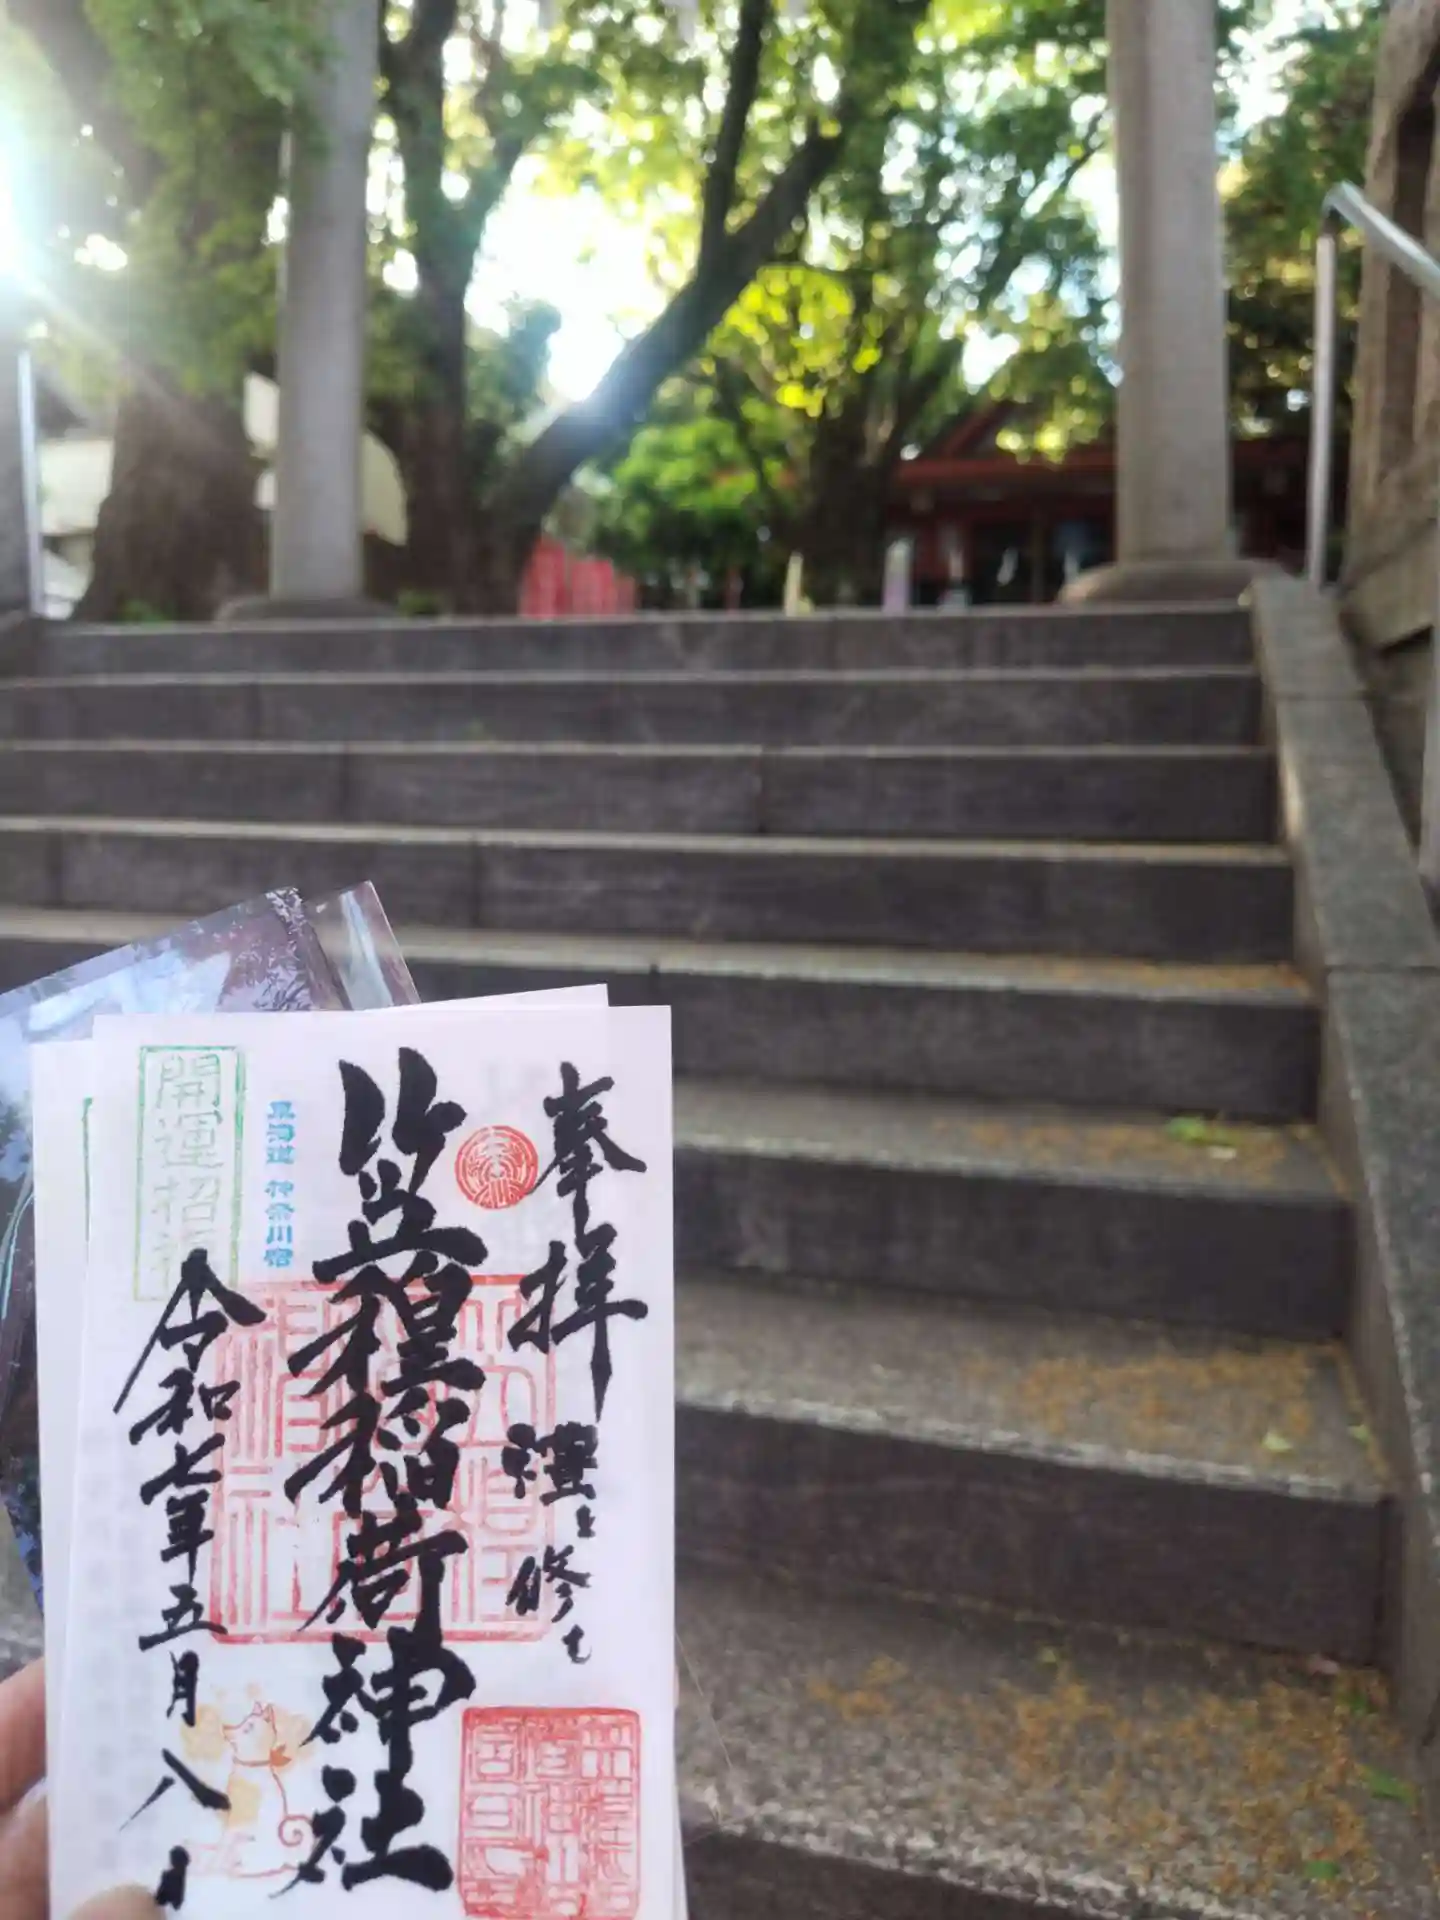 奉拝
禮を修む
笠䅣稲荷神社
東海道 神奈川宿
開運招福
令和七年五月八日